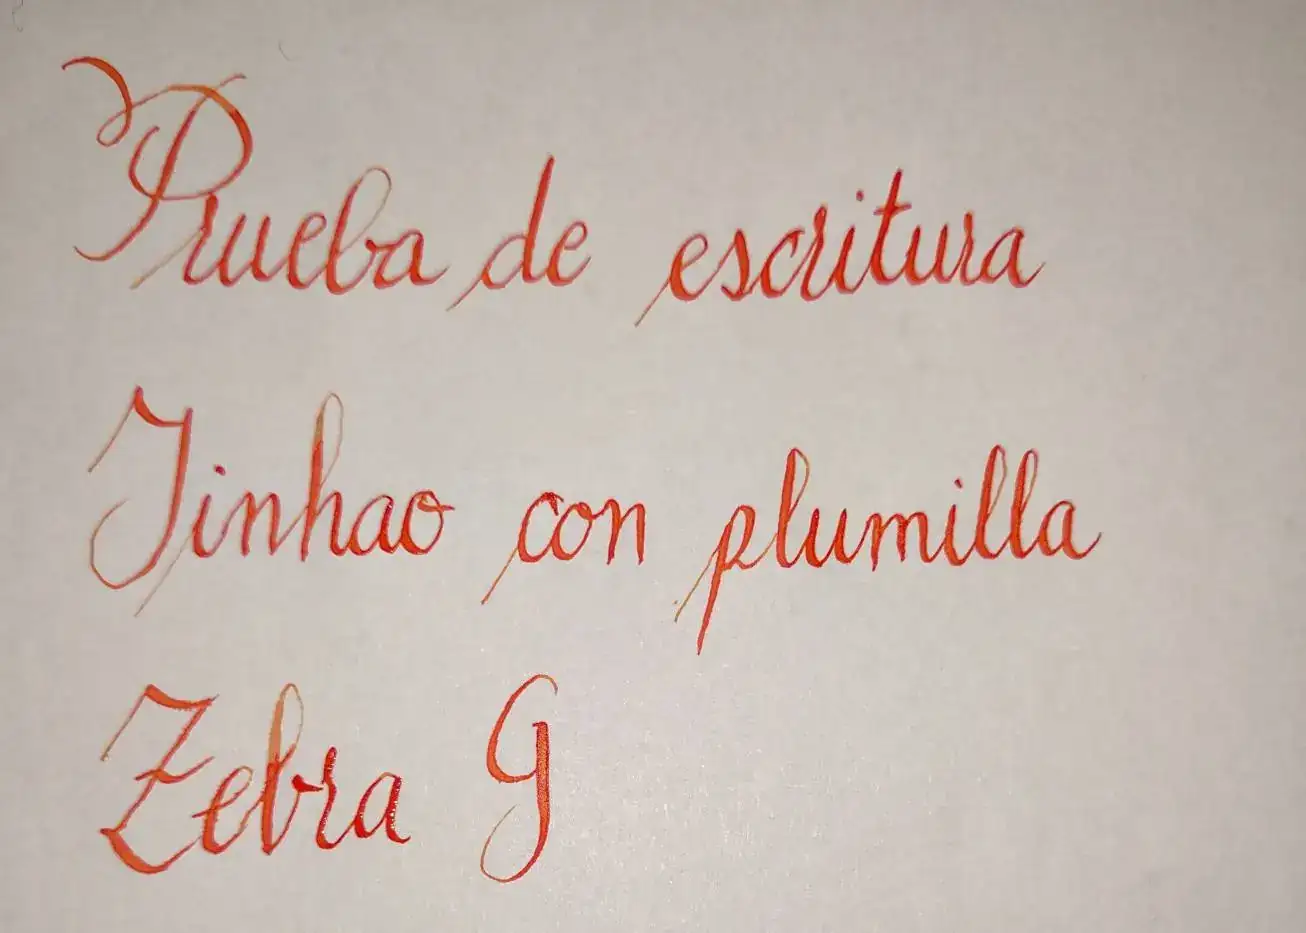 Prueba de escritura
Jinhao con plumilla
Zebra G